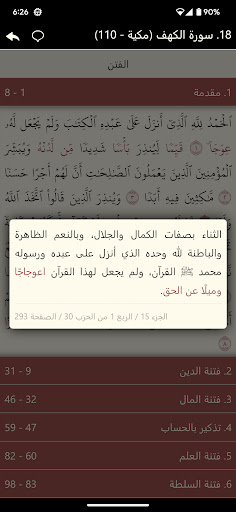 6:26
90%
18. سورة الكهف (مكية - 110)
الفتن
1. مقدمة
1 - 8
ٱلْحَمْدُ لِلَّهِ ٱلَّذِىٓ أَنزَلَ عَلَىٰ عَبْدِهِ ٱلْكِتَٰبَ وَلَمْ يَجْعَل لَّهُۥ
عِوَجَا ۝ قَيِّمًا لِّيُنذِرَ بَأْسًا شَدِيدًا مِّن لَّدُنْهُ وَيُبَشِّرَ
ٱلْمُؤْمِنِينَ ٱلَّذِينَ يَعْمَلُونَ ٱلصَّٰلِحَٰتِ أَنَّ لَهُمْ أَجْرًا حَسَنًا
۝ مَّٰكِثِينَ فِيهِ أَبَدًا ۝ وَيُنذِرَ ٱلَّذِينَ قَالُوا۟ ٱتَّخَذَ ٱللَّهُ
الثناء بصفات الكمال والجلال، وبالنعم الظاهرة
والباطنة لله وحده الذي أنزل على عبده ورسوله
محمد ﷺ القرآن، ولم يجعل لهذا القرآن اعوجاجًا
وميلًا عن الحق.
الجزء 15 / الربع 1 من الحزب 30 / الصفحة 293
2. فتنة الدين
9 - 31
3. فتنة المال
32 - 46
4. تذكير بالحساب
47 - 59
5. فتنة العلم
60 - 82
6. فتنة السلطة
83 - 98